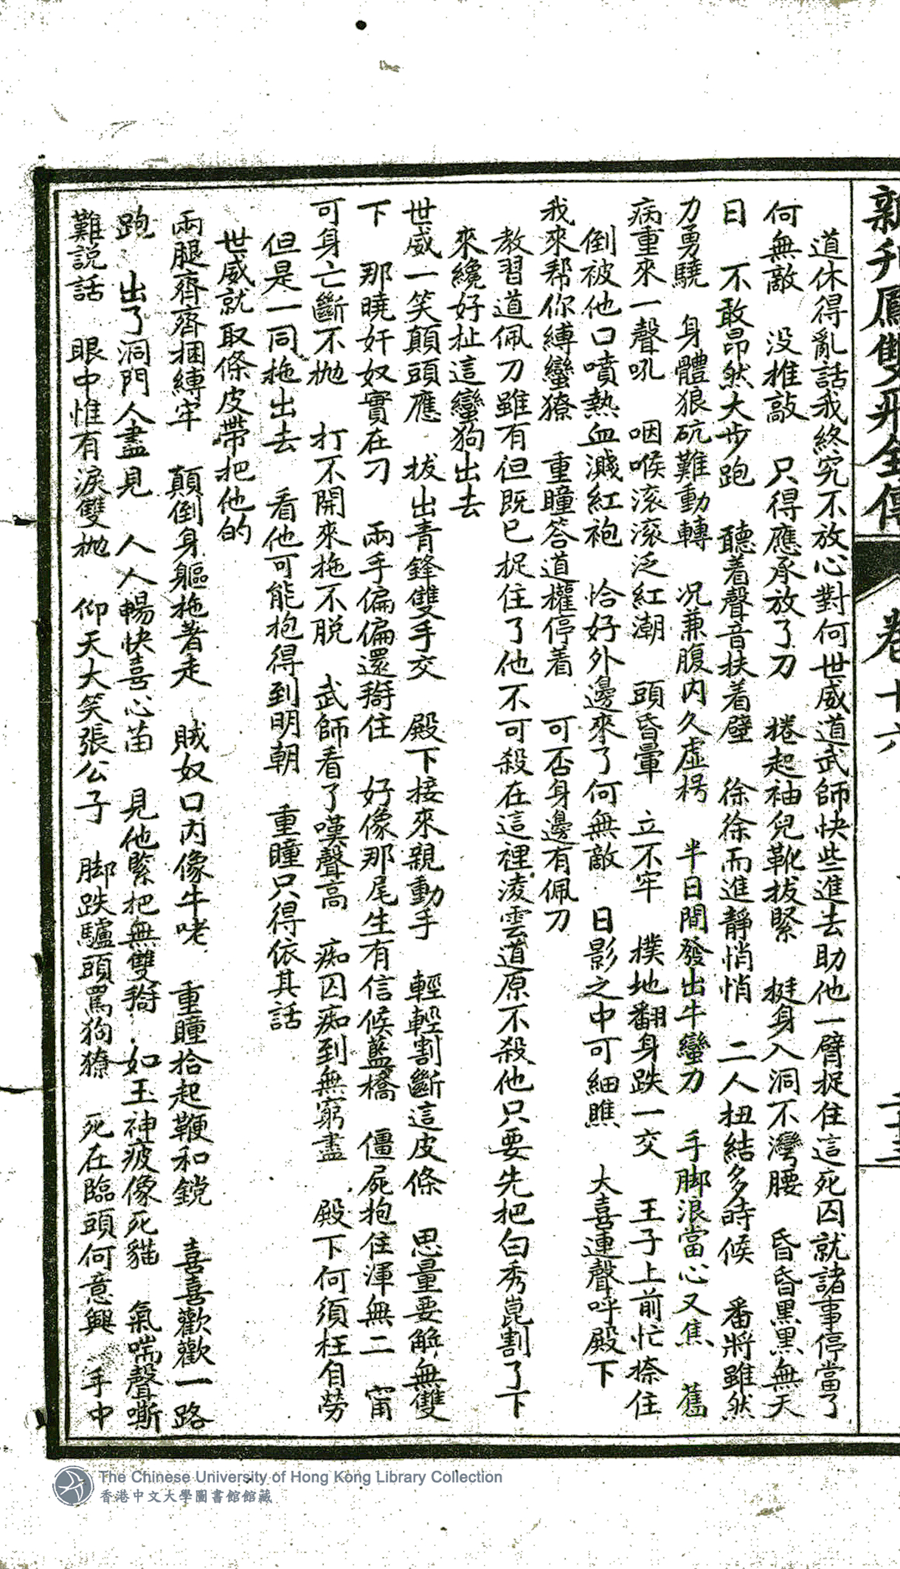 新刊鳳雙飛全傳 卷十六 二十三
道休得亂話我終究不放心對何世威道武師快些進去助他一臂捉住這死囚就諸事停當了
何無敵 没推敲 只得應承放了刀 捲起袖兒靴拔緊 挺身入洞不灣腰 昏昏黑黑無天
日 不敢昂然大步跑 聽着聲音扶着壁 徐徐而進靜悄悄 二人扭結多時候 番將雖然
力勇驍 身體狼砊難動轉 况兼腹内久虛枵 半日間發出牛蠻力 手脚浪當心又焦 舊
病重來一聲吼 咽喉滚滚泛紅潮 頭昏暈 立不牢 撲地翻身跌一交 王子上前忙捺住
倒被他口噴熱血濺紅袍 恰好外邊來了何無敵 日影之中可細瞧 大喜連聲呼殿下
我來帮你縛蠻獠 重瞳答道權停着 可否身邊有佩刀
教習道佩刀雖有但既已捉住了他不可殺在這裡淩雲道原不殺他只要先把白秀崑割了下
來纔好扯這蠻狗出去
世威一笑顛頭應 拔出青鋒雙手交 殿下接來親動手 輕輕割斷這皮條 思量要解無雙
下 那曉奸奴實在刁 兩手偏偏還搿住 好像那尾生有信候藍橋 僵屍抱住渾無二 甯
可身亡斷不抛 打不開來拖不脱 武師看了嘆聲高 痴囚痴到無窮盡 殿下何須枉自勞
但是一同拖出去 看他可能抱得到明朝 重瞳只得依其話
世威就取條皮帶把他的
兩腿齊齊捆縛牢 顛倒身軀拖著走 賊奴口内像牛咾 重瞳拾起鞭和鎲 喜喜歡歡一路
跑 出了洞門人盡見 人人暢快喜心苗 見他緊把無雙搿 如玉神疲像死貓 氣喘聲嘶
難説話 眼中惟有淚雙抛 仰天大笑張公子 脚跌驢頭罵狗獠 死在臨頭何意興 手中
The Chinese University of Hong Kong Library Collection
香港中文大學圖書館館藏